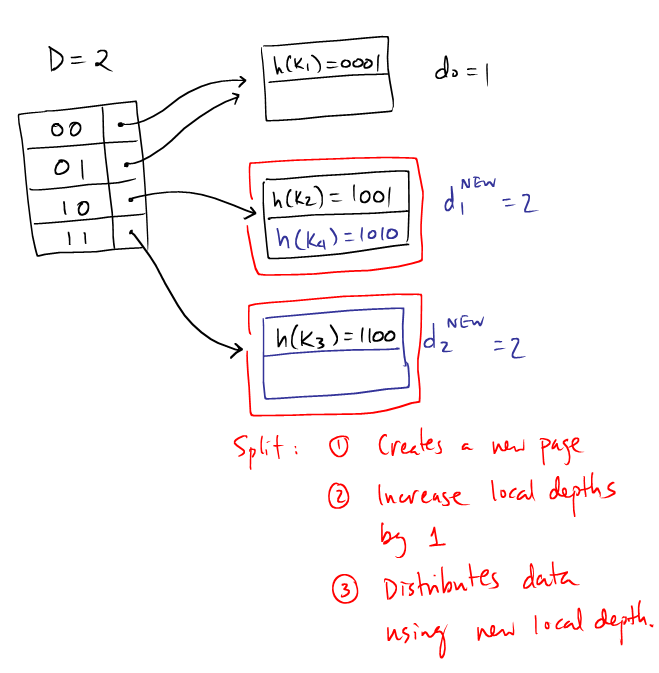 D = 2
h(K₁) = 0001
d₀ = 1
00
01
10
11
h(K₂) = 1001
h(K₄) = 1010
d₁ᴺᴱᵂ = 2
h(K₃) = 1100
d₂ᴺᴱᵂ = 2
Split: ① Creates a new page
② Increase local depths
by 1
③ Distributes data
using new local depth.